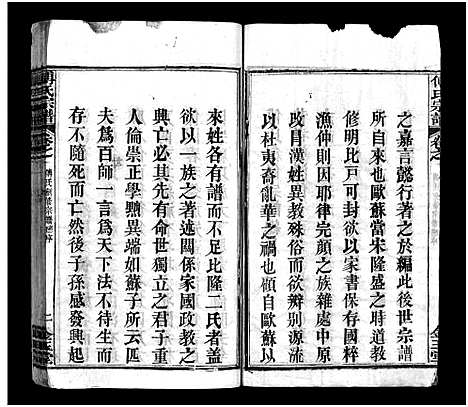 傅氏宗譜
卷之
之嘉言懿行著之於編此後世宗譜
所自來也歐蘇當宋隆盛之時道欲
修明比戶可封欲以家書保存國粹
漁仲則因耶律完顏之族雜處中原
改目漢姓異教殊俗而欲辨別源流
以杜夷裔亂華之禍也顧自歐蘇以
來姓各有譜而不足比隆二氏者蓋
欲以一族之著述關係家國政教之
興亡必其先有命世獨立之君子重
人倫崇正學黜異端如蘇子所云匹
夫為百師一言為天下法不待生而
存不隨死而亡然後子孫感發興起
傅氏宗譜
卷之